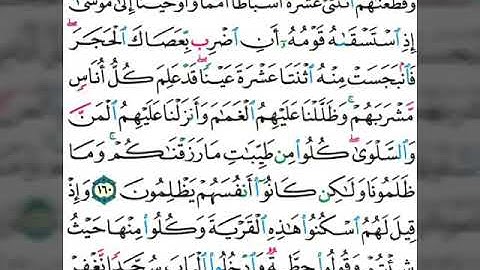 وَقَطَّعْنَٰهُمُ ٱثْنَتَىْ عَشْرَةَ أَسْبَاطًا أُمَمًا وَأَوْحَيْنَآ إِلَىٰ مُوسَىٰٓ
إِذِ ٱسْتَسْقَىٰهُ قَوْمُهُۥٓ أَنِ ٱضْرِب بِّعَصَاكَ ٱلْحَجَرَ ۖ
فَٱنۢبَجَسَتْ مِنْهُ ٱثْنَتَا عَشْرَةَ عَيْنًا ۖ قَدْ عَلِمَ كُلُّ أُنَاسٍ
مَّشْرَبَهُمْ ۚ وَظَلَّلْنَا عَلَيْهِمُ ٱلْغَمَٰمَ وَأَنزَلْنَا عَلَيْهِمُ ٱلْمَنَّ
وَٱلسَّلْوَىٰ ۖ كُلُوا۟ مِن طَيِّبَٰتِ مَا رَزَقْنَٰكُمْ ۚ وَمَا
ظَلَمُونَا وَلَٰكِن كَانُوٓا۟ أَنفُسَهُمْ يَظْلِمُونَ ١٦٠ وَإِذْ
قِيلَ لَهُمُ ٱسْكُنُوا۟ هَٰذِهِ ٱلْقَرْيَةَ وَكُلُوا۟ مِنْهَا حَيْثُ
شِئْتُمْ وَقُولُوا۟ حِطَّةٌ وَٱدْخُلُوا۟ ٱلْبَابَ سُجَّدًا نَّغْفِرْ